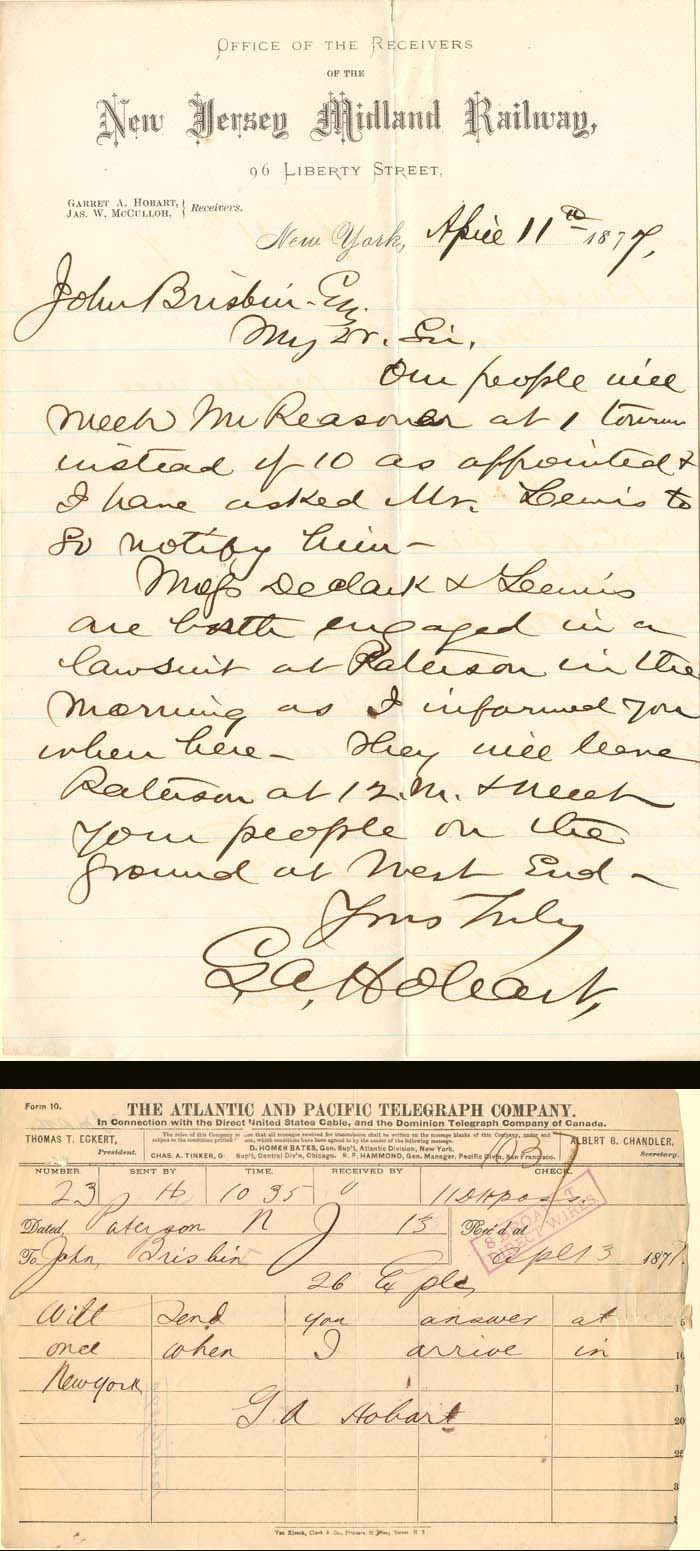 OFFICE OF THE RECEIVERS
OF THE
New Jersey Midland Railway,
96 LIBERTY STREET,
GARRET A. HOBART,
JAS. W. McCULLOH, } Receivers.
New York, April 11th 1877,
John Brisbin Esq
My Dr. Sir,
Our people will
meet Mr Reasoner at 1 tomrw
instead of 10 as appointed &
I have asked Mr. Lewis to
so notify him—
Messrs Declark & Lewis
are both engaged in a
lawsuit at Paterson in the
morning as I informed you
when here— They will leave
Paterson at 12.M. & meet
your people on the
ground at West End—
Yours Truly
G. A. Hobart,
Form 10.
THE ATLANTIC AND PACIFIC TELEGRAPH COMPANY.
In Connection with the Direct United States Cable, and the Dominion Telegraph Company of Canada.
THOMAS T. ECKERT,
President.
The rules of this Company that all messages received for transmission shall be written on the message blanks of this Company, under and
subject to the conditions printed on, which conditions have been agreed to by the sender of the following message.
D. HOMER BATES, Gen. Sup't, Atlantic Division, New York.
CHAS. A. TINKER, G Sup't, Central Div'n, Chicago. R. P. HAMMOND, Gen. Manager, Pacific Div'n, San Francisco.
ALBERT B. CHANDLER,
Secretary.
NUMBER SENT BY TIME. RECEIVED BY CHECK.
23 H 10 35
Dated, Paterson N J 13 Rec'd at
DIRECT WIRES
To John Brisbin 187
26 Ex ple
Will send you answer at 5
once when I arrive in 10
Newyork
G. A Hobart 20
25